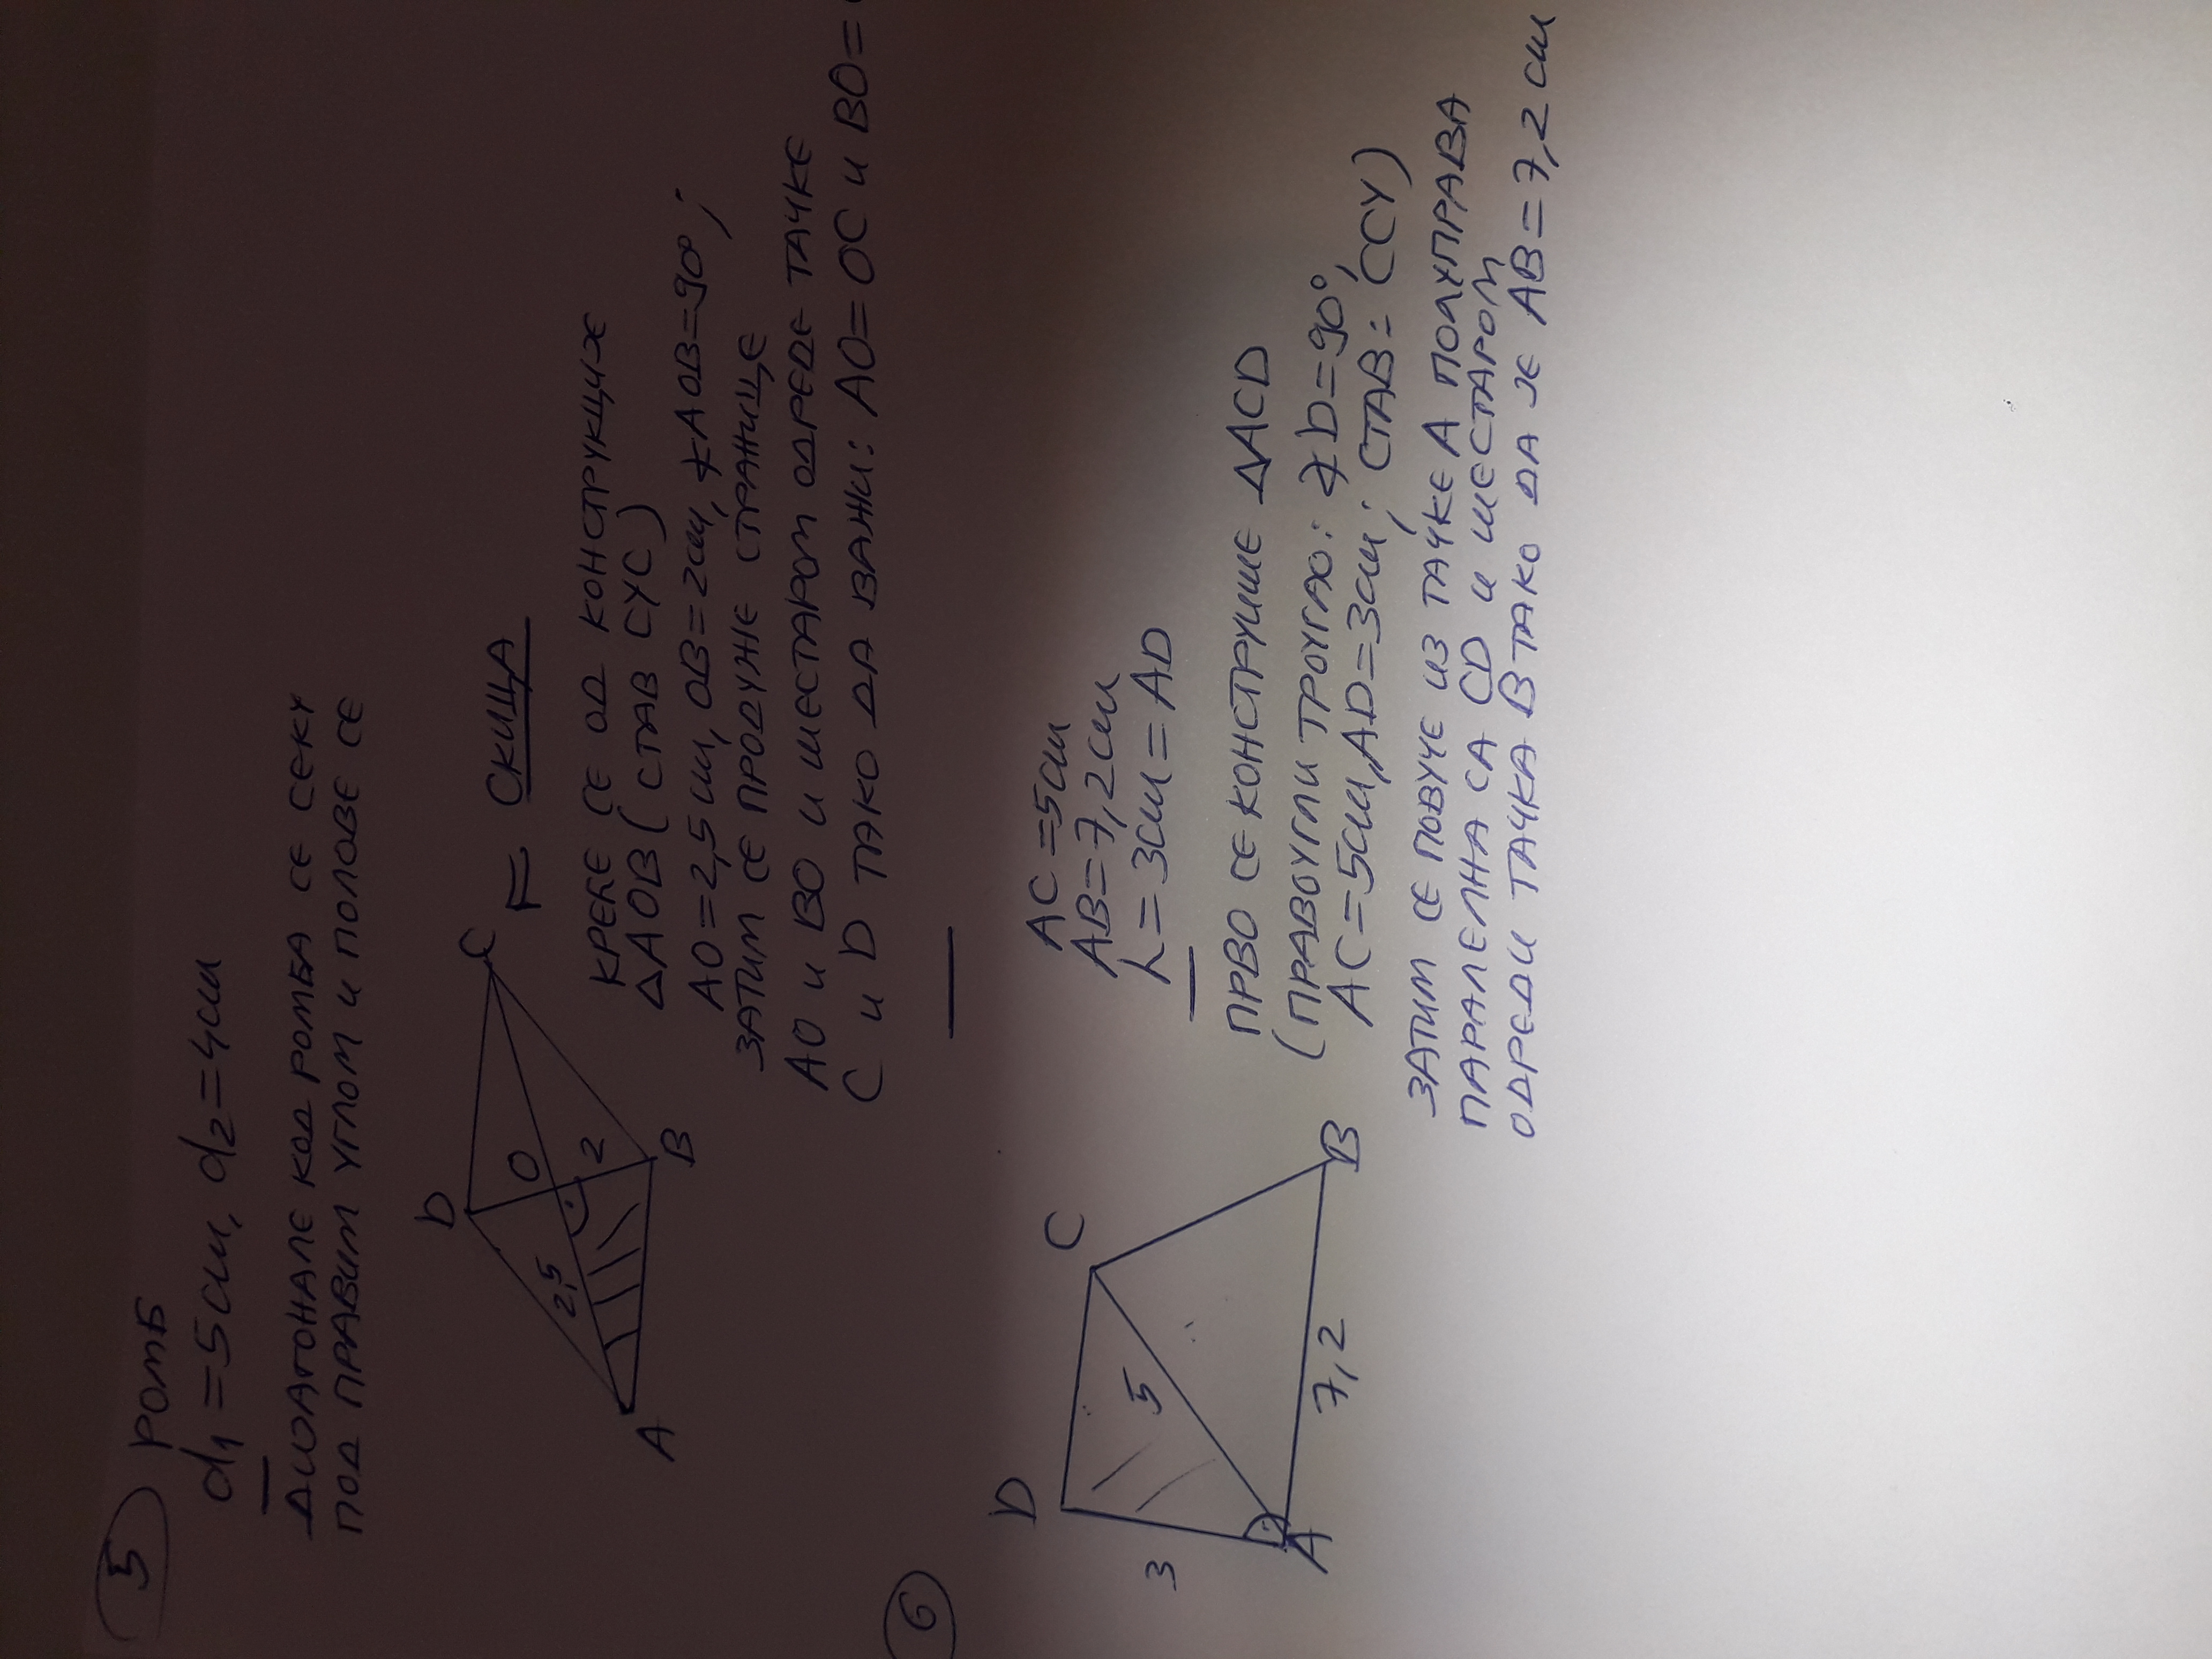 5 РОМБ
d1=5cm, d2=4cm
ДИЈАГОНАЛЕ КОД РОМБА СЕ СЕКУ
ПОД ПРАВИМ УГЛОМ И ПОЛОВЕ СЕ
D
C
O
2,5
2
A
B
Г= СКИЦА
КРЕЋЕ СЕ ОД КОНСТРУКЦИЈЕ
ΔAOB (СТАВ СУС)
AO=2,5cm, OB=2cm, ∢AOB=90°;
ЗАТИМ СЕ ПРОДУЖЕ СТРАНИЦЕ
AO И BO И ШЕСТАРОМ ОДРЕДЕ ТАЧКЕ
C И D ТАКО ДА ВАЖИ: AO=OC И BO=
6
D
C
3
5
A
7,2
B
AC=5cm
AB=7,2cm
h=3cm=AD
ПРВО СЕ КОНСТРУИШЕ ΔACD
(ПРАВОУГЛИ ТРОУГАО: ∢D=90°,
AC=5cm, AD=3cm; СТАВ: ССУ)
ЗАТИМ СЕ ПОВУЧЕ ИЗ ТАЧКЕ A ПОЛУПРАВА
ПАРАЛЕЛНА СА CD И ШЕСТАРОМ
ОДРЕДИ ТАЧКА B ТАКО ДА ЈЕ AB=7,2cm